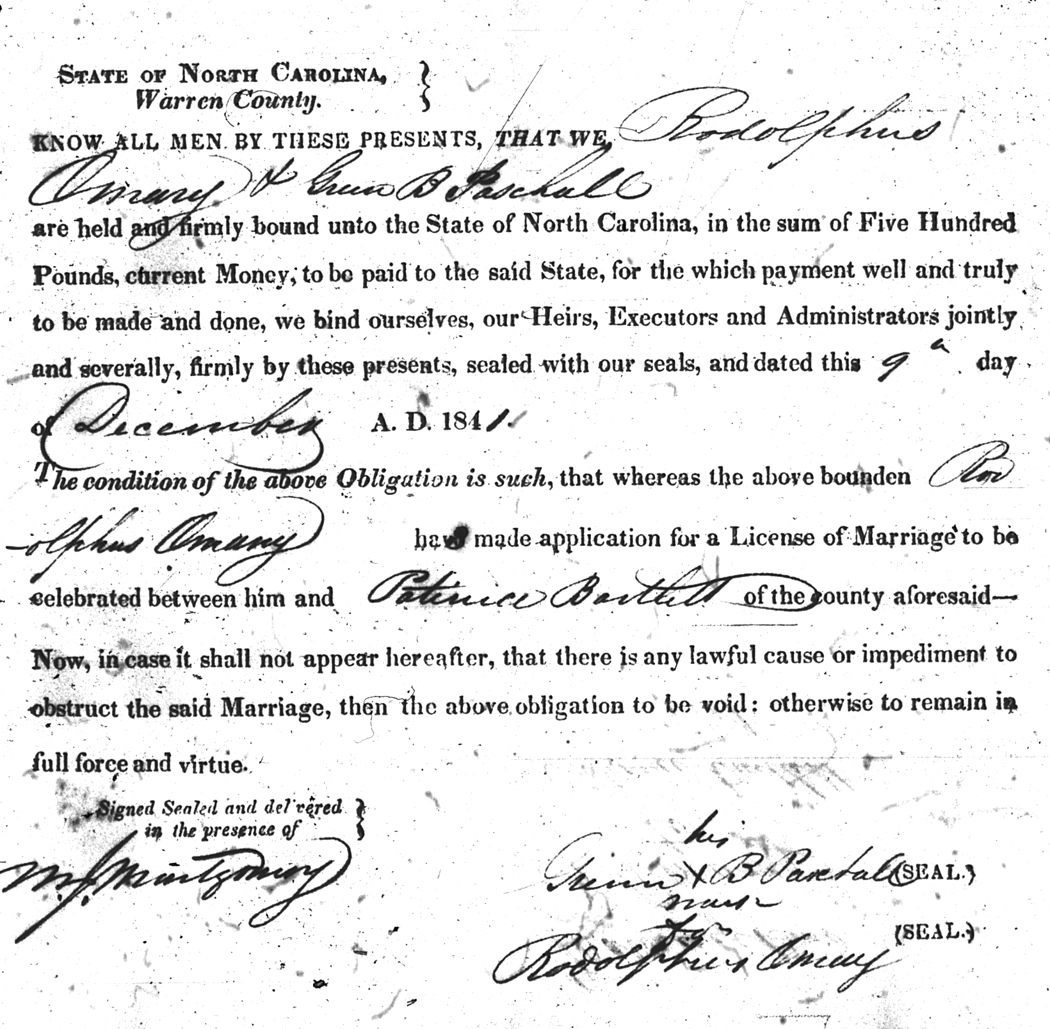 STATE OF NORTH CAROLINA,
Warren County.
KNOW ALL MEN BY THESE PRESENTS, THAT WE, Rodolphus
Omary & Green B Paschall
are held and firmly bound unto the State of North Carolina, in the sum of Five Hundred
Pounds, current Money, to be paid to the said State, for the which payment well and truly
to be made and done, we bind ourselves, our Heirs, Executors and Administrators jointly
and severally, firmly by these presents, sealed with our seals, and dated this 9 day
of December A. D. 1841.
The condition of the above Obligation is such, that whereas the above bounden Rod
olphus Omary has made application for a License of Marriage to be
celebrated between him and Patience Bartlett of the county aforesaid—
Now, in case it shall not appear hereafter, that there is any lawful cause or impediment to
obstruct the said Marriage, then the above obligation to be void: otherwise to remain in
full force and virtue.
Signed Sealed and delivered
in the presence of
M J Montgomery
his
Green X B Paschall (SEAL.)
mark
(SEAL.)
Rodolphus Omary